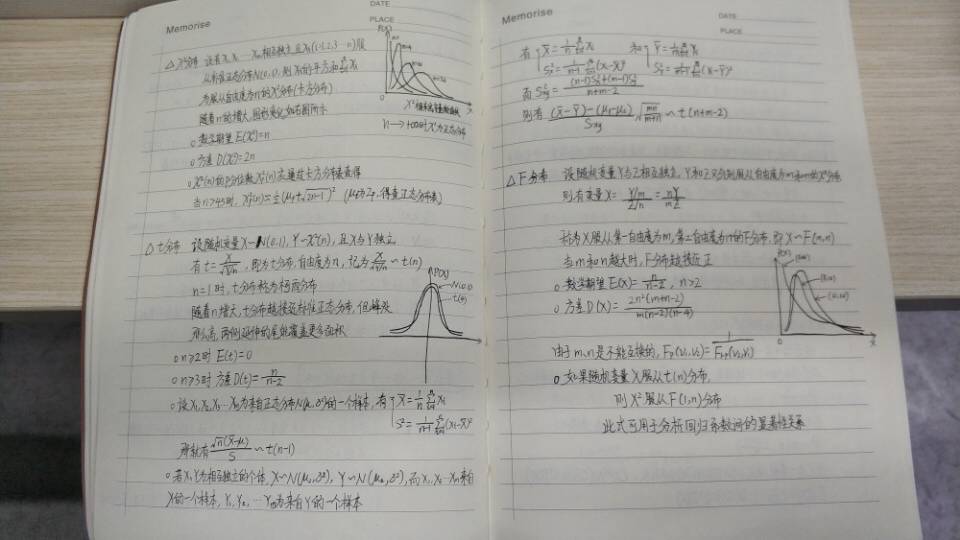 Memorise
DATE
PLACE
△ χ²分布 设有X₁ X₂ … Xₙ相互独立,且Xᵢ(i=1,2,3…n)服
从标准正态分布N(0,1),则Xᵢ的平方和∑Xᵢ²
为服从自由度为n的χ²分布(卡方分布)
随着n的增大,图形变化如右图所示
f(x)
0
x
n→+∞时χ²为正态分布
。数学期望E(χ²)=n
。方差D(χ²)=2n
。χ²(n)的P分位数χ²(n)通过卡方分布表查得
当n>45时,χ²(n)≈½(μₚ+√2n-1)² (μₚ为Zₚ,得查正态分布表)
△ t分布 设随机变量X~N(0,1),Y~χ²(n),且X与Y独立
有t=X/√(Y/n),即为t分布,自由度为n,记为X/√(Y/n) ~ t(n)
n=1时,t分布称为柯西分布
随着n增大,t分布越接近标准正态分布,但峰处
那么高,两侧延伸的尾能覆盖更多面积
P(x)
N(0,1)
t(4)
x
。n≥2时 E(t)=0
。n≥3时 方差D(t)=n/(n-2)
。设X₁,X₂,X₃…Xₙ为来自正态分布N(μ,σ²)的一个样本,有 X̄=1/n ∑Xᵢ
S²=1/(n-1) ∑(xᵢ-x̄)²
那就有 √n(x̄-μ)/S ~ t(n-1)
。若X,Y为相互独立的个体,X~N(μ₁,σ²),Y~N(μ₂,σ²),而X₁,X₂…Xₙ来自
X的一个样本,Y₁,Y₂,…Yₘ为来自Y的一个样本
Memorise
DATE
PLACE
有 X̄=1/n ∑Xᵢ 和 Ȳ=1/n ∑Yᵢ
而
n+m-2
则有 (X̄-Ȳ)-(μ₁-μ₂)/Sxy √(mn/(m+n)) ~ t(n+m-2)
△ F分布 设随机变量Y与Z相互独立,Y和Z分别服从自由度为m和n的χ²分布
则有变量X=(Y/m)/(Z/n)=nY/mZ
称为X服从第一自由度为m,第二自由度为n的F分布,即X~F(m,n)
当m和n越大时,F分布越接近正
。数学期望E(X)=n/(n-2),n>2
。方差D(X)=2n²(m+n-2)/m(n-2)(n-4)
f(x)
0
x
由于m,n是不能互换的,Fₚ(v₁,v₂)=1/F₁₋ₚ(v₂,v₁)
。如果随机变量X服从t(n)分布,
则X²服从F(1,n)分布
此式可用于分析回归系数间的显著性关系